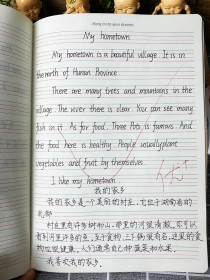 My hometown
My hometown is a beautiful village. It is in
the north of Hunan Province.
There are many trees and mountains in the
village. The river there is clear. You can see many
fish in it. As for food. Three Pots is famous. And
the food here is healthy. People usually plant
vegetables and fruit by themselves.
I like my hometown.
优
我的家乡
我的家乡是个美丽的村庄,它位于湖南省的
北部
村庄里有许多树和山。那里的河很清澈,你可以
看到河里许多的鱼。至于食物,三下锅很有名,这里的食
物也很健康。人们通常自己种蔬菜和水果。
我喜欢我的家乡。